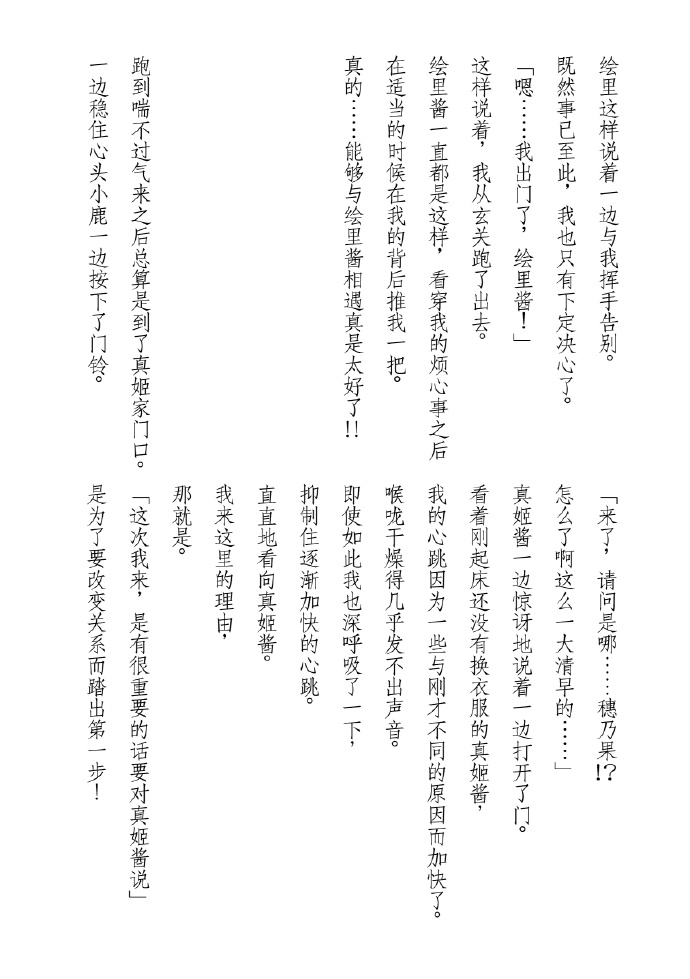 绘里这样说着一边与我挥手告别。
既然事已至此，我也只有下定决心了。
「嗯……我出门了，绘里酱！」
这样说着，我从玄关跑了出去。
绘里酱一直都是这样，看穿我的烦心事之后
在适当的时候在我的背后推我一把。
真的……能够与绘里酱相遇真是太好了!!
跑到喘不过气来之后总算是到了真姬家门口。
一边稳住心头小鹿一边按下了门铃。
「来了，请问是哪……穗乃果!?
怎么了啊这么一大清早的……」
真姬酱一边惊讶地说着一边打开了门。
看着刚起床还没有换衣服的真姬酱，
我的心跳因为一些与刚才不同的原因而加快了。
喉咙干燥得几乎发不出声音。
即使如此我也深呼吸了一下，
抑制住逐渐加快的心跳。
直直地看向真姬酱。
我来这里的理由，
那就是。
「这次我来，是有很重要的话要对真姬酱说」
是为了要改变关系而踏出第一步！